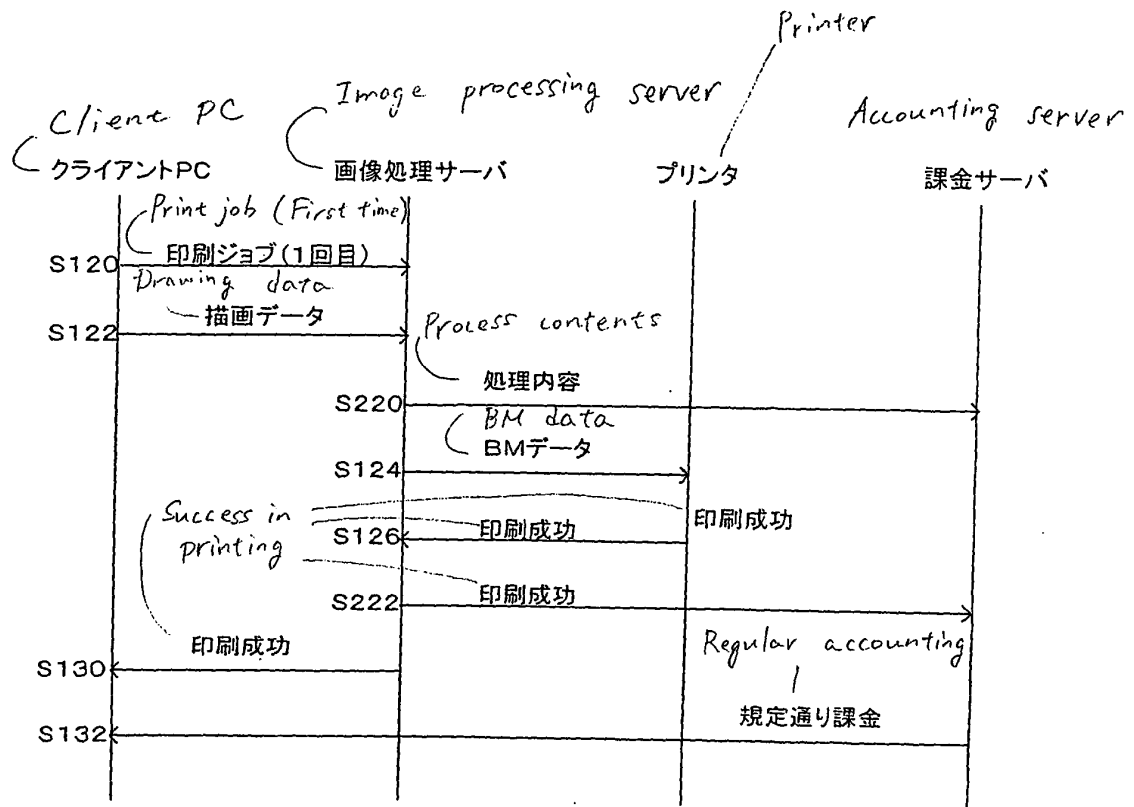 Printer
Client PC
Image processing server
Accounting server
クライアントPC
画像処理サーバ
プリンタ
課金サーバ
Print job (First time)
印刷ジョブ(1回目)
S120
Drawing data
描画データ
S122
Process contents
処理内容
S220
BM data
BMデータ
S124
Success in
printing
印刷成功
印刷成功
S126
印刷成功
S222
印刷成功
S130
Regular accounting
規定通り課金
S132